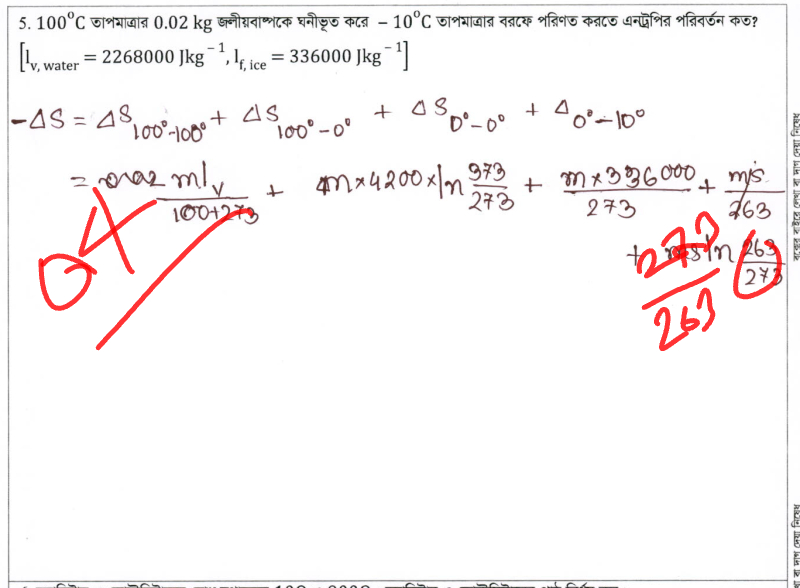 5. 100°C তাপমাত্রার 0.02 kg জলীয়বাষ্পকে ঘনীভূত করে − 10°C তাপমাত্রার বরফে পরিণত করতে এনট্রপির পরিবর্তন কত?
[l_{v, water} = 2268000 Jkg⁻¹, l_{f, ice} = 336000 Jkg⁻¹]
−ΔS = ΔS_{100°-100°} + ΔS_{100°-0°} + ΔS_{0°-0°} + Δ_{0°-10°}
= ml_v / 100+273 + m×4200×ln 373/273 + m×336000 / 273 + 
+ ln 263/273
273/263
04